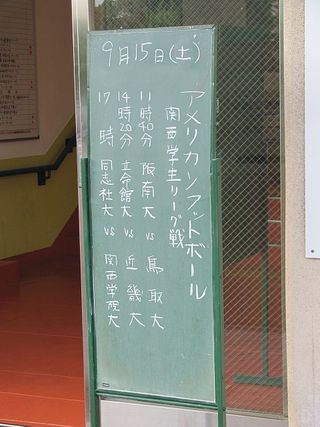 9月15日(土)
アメリカンフットボール
関西学生リーグ戦
11時40分 阪南大 vs 鳥取大
14時20分 立命館大 vs 近畿大
17時 同志社大 vs 関西学院大